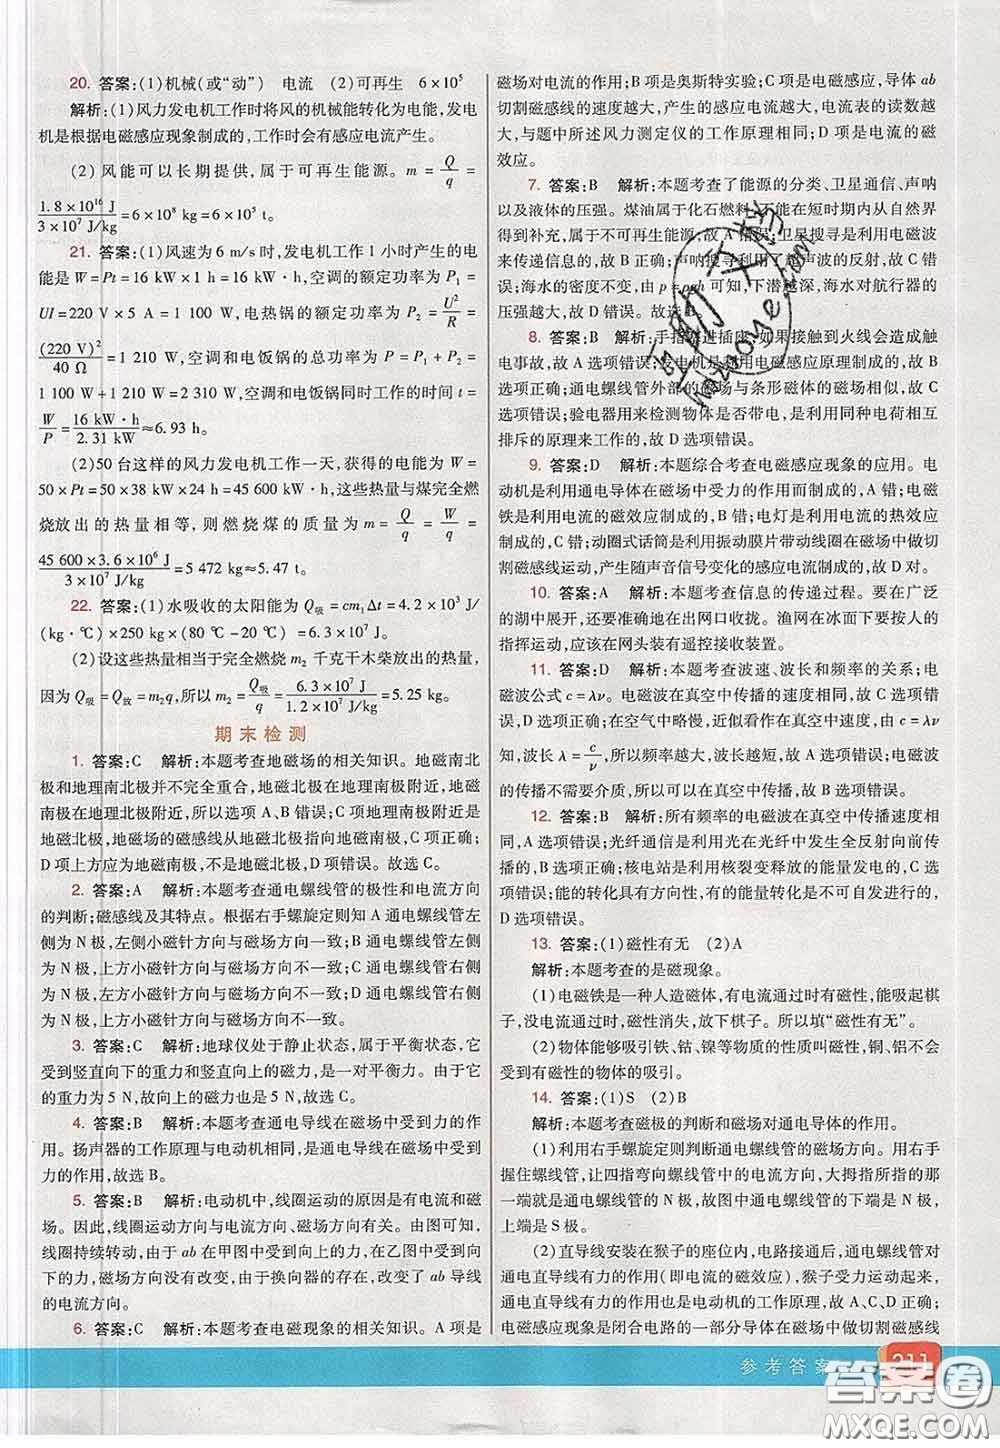 20. 答案:(1)机械(或“动”) 电流 (2)可再生 6×10⁵
解析:(1)风力发电机工作时将风的机械能转化为电能,发电
机是根据电磁感应现象制成的,工作时会有感应电流产生。
(2)风能可以长期提供,属于可再生能源。m = Q/q =
1.8×10¹⁶ J / 3×10⁷ J/kg = 6×10⁸ kg = 6×10⁵ t。
21. 答案:(1)风速为 6 m/s时,发电机工作 1 小时产生的电
能是 W = Pt = 16 kW×1 h = 16 kW·h,空调的额定功率为 P₁ =
UI = 220 V×5 A = 1 100 W,电热锅的额定功率为 P₂ = U²/R =
(220 V)²/40 Ω = 1 210 W,空调和电饭锅的总功率为 P = P₁ + P₂ =
1 100 W+1 210 W = 2 310 W,空调和电饭锅同时工作的时间 t =
W/P = 16 kW·h / 2.31 kW ≈ 6.93 h。
(2)50台这样的风力发电机工作一天,获得的电能为 W =
50×Pt = 50×38 kW×24 h = 45 600 kW·h,这些热量与煤完全燃
烧放出的热量相等,则燃烧煤的质量为 m = Q/q = W/q =
45 600×3.6×10⁶ J / 3×10⁷ J/kg = 5 472 kg ≈ 5.47 t。
22. 答案:(1)水吸收的太阳能为 Q吸 = cm₁Δt = 4.2×10³ J/
(kg·℃)×250 kg×(80 ℃-20 ℃) = 6.3×10⁷ J。
(2)设这些热量相当于完全燃烧 m₂ 千克干木柴放出的热量,
因为 Q吸 = Q放 = m₂q,所以 m₂ = Q吸/q = 6.3×10⁷ J / 1.2×10⁷ J/kg = 5.25 kg。
期末检测
1. 答案:C 解析:本题考查地磁场的相关知识。地磁南北
极和地理南北极并不完全重合,地磁北极在地理南极附近,地磁
南极在地理北极附近,所以选项A、B错误;C项地理南极附近是
地磁北极,地磁场的磁感线从地磁北极指向地磁南极,C项正确;
D项上方应为地磁南极,不是地磁北极,D项错误。故选C。
2. 答案:A 解析:本题考查通电螺线管的极性和电流方向
的判断;磁感线及其特点。根据右手螺旋定则知A通电螺线管左
侧为N极,左侧小磁针方向与磁场方向一致;B通电螺线管左侧
为N极,上方小磁针方向与磁场方向不一致;C通电螺线管右侧
为N极,上方小磁针方向与磁场方向不一致;D通电螺线管右侧
为N极,上方小磁针方向与磁场方向不一致。
3. 答案:C 解析:地球仪处于静止状态,属于平衡状态,它
受到竖直向下的重力和竖直向上的磁力,是一对平衡力。由于它
的重力为5 N,故向上的磁力也是5 N,故选C。
4. 答案:B 解析:本题考查通电导线在磁场中受到力的作
用。扬声器的工作原理与电动机相同,通电导线在磁场中受到
力的作用,故选B。
5. 答案:B 解析:电动机中,线圈运动的原因是有电流和磁
场。因此,线圈运动方向与电流方向、磁场方向有关。由图可知,
线圈持续转动,由于ab在甲图中受到向上的力,在乙图中受到向
下的力,磁场方向没有改变,由于换向器的存在,改变了ab导线
的电流方向。
6. 答案:C 解析:本题考查电磁现象的相关知识。A项是
磁场对电流的作用;B项是奥斯特实验;C项是电磁感应,导体ab
切割磁感线的速度越大,产生的感应电流越大,电流表的读数越
大,与题中所述风力测定仪的工作原理相同;D项是电流的磁
效应。
7. 答案:B 解析:本题考查了能源的分类、卫星通信、声呐
以及液体的压强。煤油属于化石燃料,不能在短时期内从自然界
得到补充,属于不可再生能源,故A错误;卫星搜寻是利用电磁波
来传递信息的,故B正确;声呐搜寻利用了超声波的反射,故C错
误;海水的密度不变,由p=ρgh可知,下潜越深,海水对航行器的
压强越大,故D错误。故选B。
8. 答案:B 解析:手指触进插座,如果接触到火线会造成触
电事故,故A选项错误;发电机是利用电磁感应原理制成的,故B
选项正确;通电螺线管外部的磁场与条形磁体的磁场相似,故C
选项错误;验电器用来检测物体是否带电,是利用同种电荷相互
排斥的原理来工作的,故D选项错误。
9. 答案:D 解析:本题综合考查电磁感应现象的应用。电
动机是利用通电导体在磁场中受力的作用而制成的,A错;电磁
铁是利用电流的磁效应制成的,B错;电灯是利用电流的热效应
制成的,C错;动圈式话筒是利用振动膜片带动线圈在磁场中做切
割磁感线运动,产生随声音信号变化的感应电流制成的,故D对。
10. 答案:A 解析:本题考查信息的传递过程。要在广泛
的湖中展开,还要准确地在出网口收拢。渔网在冰面下要按人
的指挥运动,应该在网头装有遥控接收装置。
11. 答案:D 解析:本题考查波速、波长和频率的关系;电
磁波公式c=λν。电磁波在真空中传播的速度相同,故C选项错
误,D选项正确;在空气中略慢,近似看作在真空中速度,由c=λν
知,波长λ=c/ν,所以频率越大,波长越短,故A选项正确;电磁波
的传播不需要介质,所以可以在真空中传播,故B选项错误。
12. 答案:B 解析:所有频率的电磁波在真空中传播速度相
同,A选项错误;光纤通信是利用光在光纤中发生全反射向前传
播的,B选项正确;核电站是利用核裂变释放的能量发电的,C选
项错误;能的转化具有方向性,有的能量转化是不可自发进行的,
D选项错误。
13. 答案:(1)磁性有无 (2)A
解析:本题考查的是磁现象。
(1)电磁铁是一种人造磁体,有电流通过时有磁性,能吸起棋
子,没电流通过时,磁性消失,放下棋子。所以填“磁性有无”。
(2)物体能够吸引铁、钴、镍等物质的性质叫磁性,铜、铝不会
受到有磁性的物体的吸引。
14. 答案:(1)S (2)B
解析:本题考查磁极的判断和磁场对通电导体的作用。
(1)利用右手螺旋定则判断通电螺线管的磁场方向。用右手
握住螺线管,让四指弯向螺线管中的电流方向,大拇指所指的那
一端就是通电螺线管的N极,故图中通电螺线管的下端是N极,
上端是S极。
(2)直导线安装在猴子的座位内,电路接通后,通电螺线管对
通电直导线有力的作用(即电流的磁效应),猴子受力运动起来,
通电直导线有力的作用也是电动机的工作原理,故A、C、D正确,
电磁感应现象是闭合电路的一部分导体在磁场中做切割磁感线
参考答案 211
答案圈
MXQE.COM